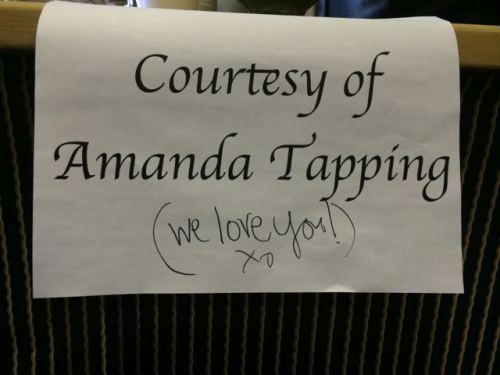 Courtesy of
Amanda Tapping
(we love you!)
xo